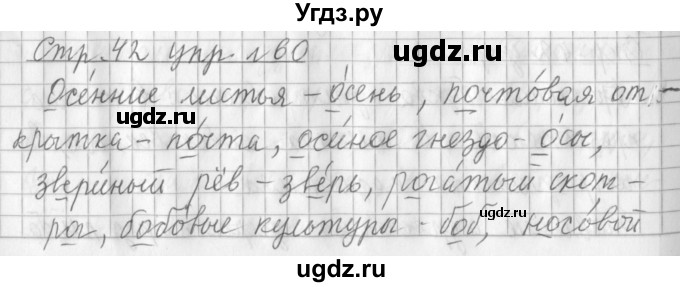 Угдз.ру
Стр. 42 упр №60
Осе́нние листья – о́сень, почто́вая от-
крытка – по́чта, оси́ное гнездо – о́сы,
звери́ный рёв – зве́рь, рога́тый скот –
рог, бобо́вые культуры – боб, носо́вой
ugdz.ru
ugdz.ru
ugdz.ru
ugdz.ru
ugdz.ru